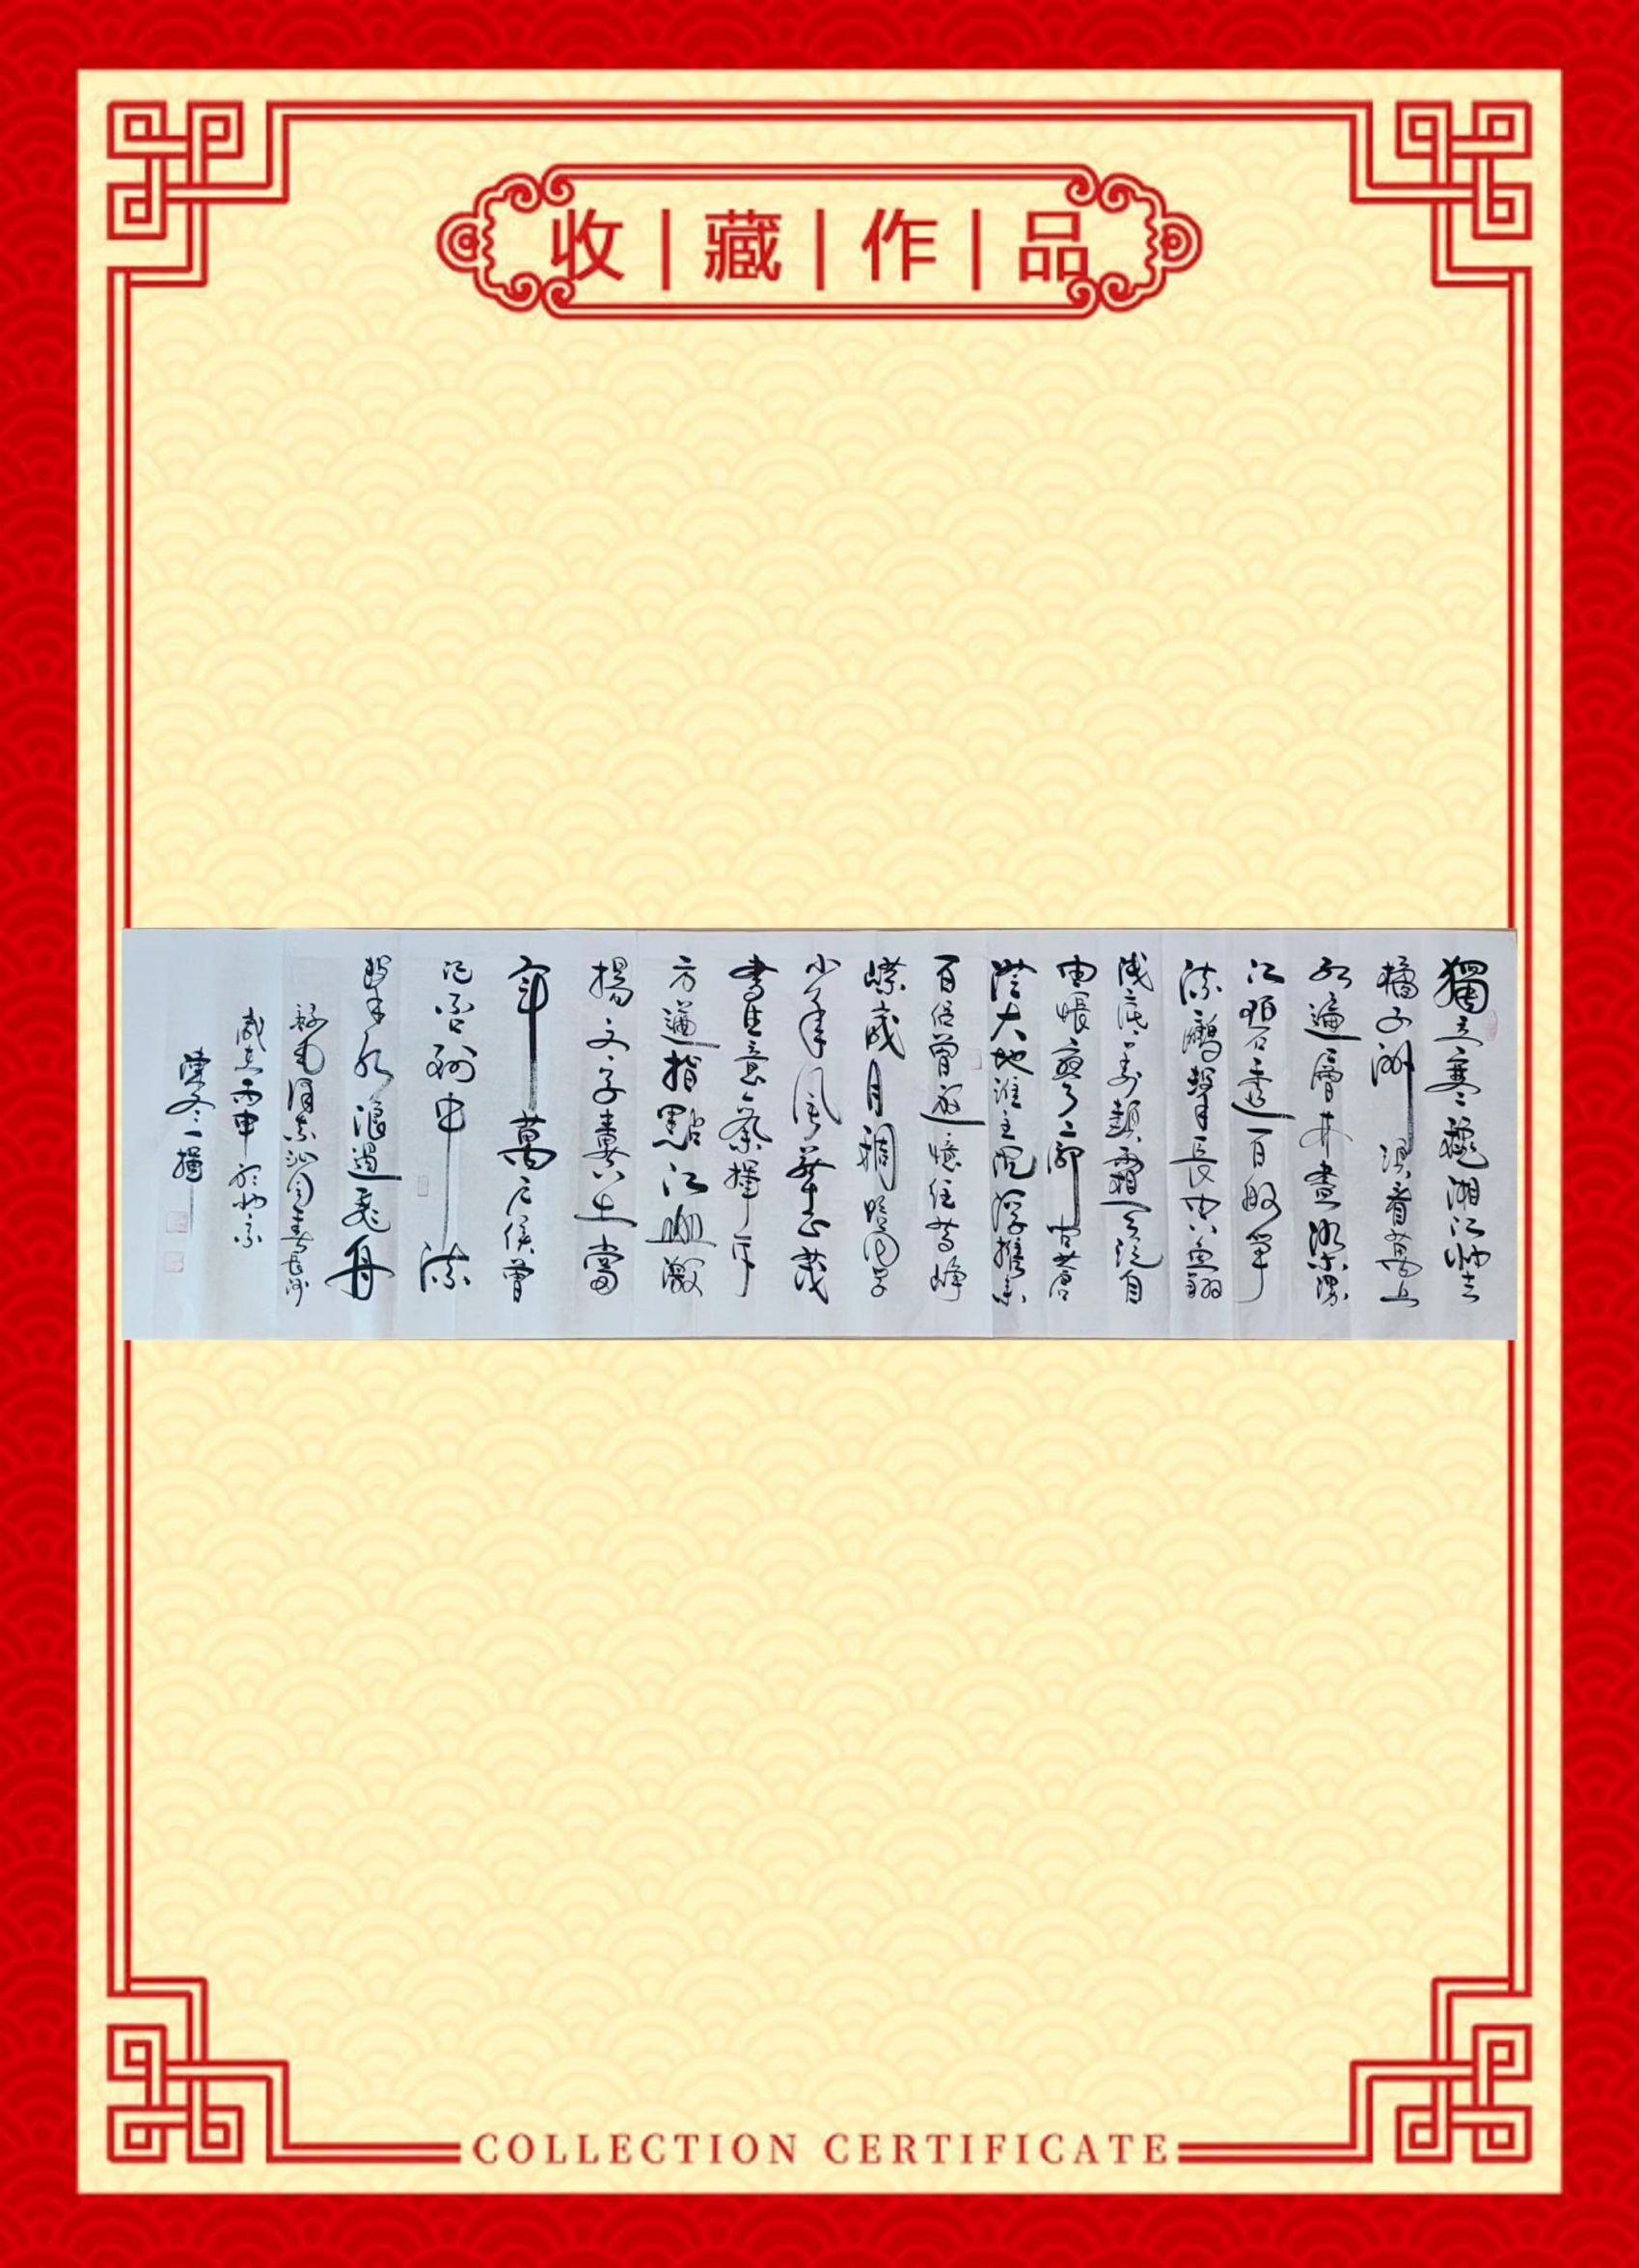 收|藏|作|品
獨立寒秋湘江北去
橘子洲頭看萬山
紅遍層林盡染漫
江碧透百舸爭
流鷹擊長空魚翔
淺底萬類霜天競自
由悵寥廓問蒼
茫大地誰主沉浮攜來
百侶曾遊憶往昔崢
嶸歲月稠恰同學
少年風華正茂
書生意氣揮斥
方遒指點江山激
揚文字糞土當
年萬戶侯曾
記否到中流
擊水浪遏飛舟
錄毛澤東沁園春長沙
歲在丙申
COLLECTION CERTIFICATE